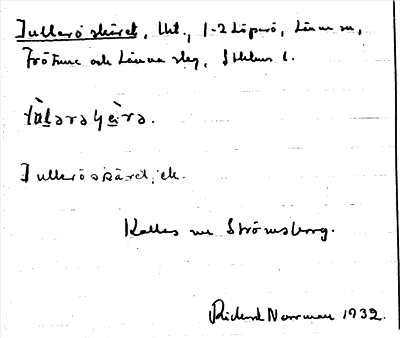 Jullerö skäret, lht., 1-2 Löparö, Länna sn,
Frötuna och Länna skg, Sthlms l.
Jullerö skäret, ek.
Kallas nu Strömsborg.
Rickard Norrman 1932.